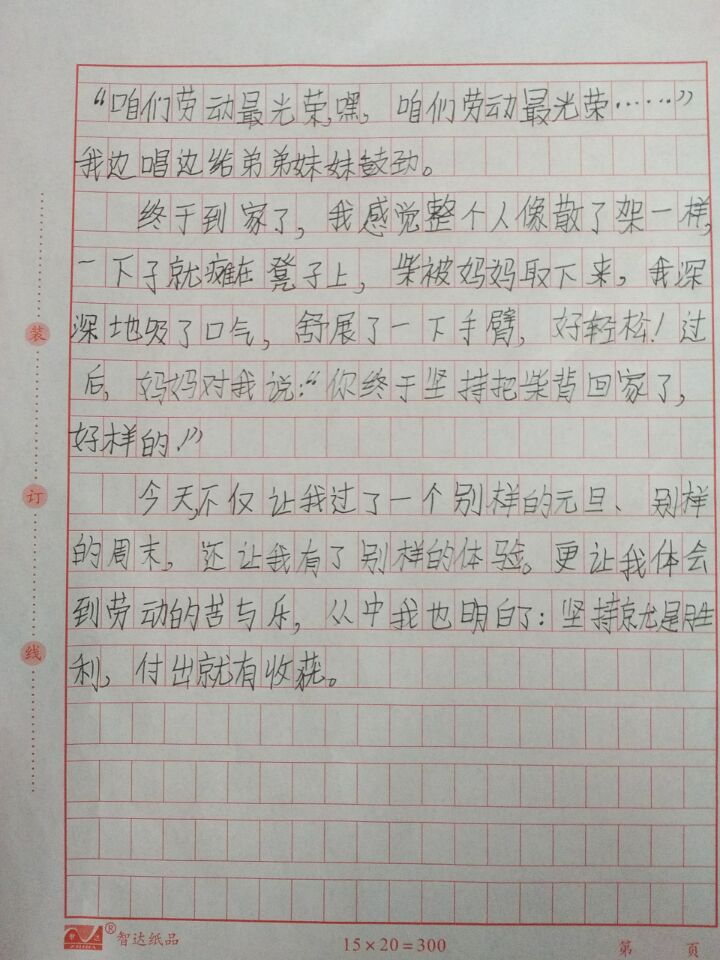 “咱们劳动最光荣,嘿,咱们劳动最光荣……”
我边唱边给弟弟妹妹鼓劲。
终于到家了,我感觉整个人像散了架一样,
一下子就瘫在凳子上,柴被妈妈取下来,我深
深地吸了口气,舒展了一下手臂,好轻松!过
后,妈妈对我说:“你终于坚持把柴背回家了,
好样的!”
今天,不仅让我过了一个别样的元旦、别样
的周末,还让我有了别样的体验。更让我体会
到劳动的苦与乐,从中我也明白了:坚持就是胜
利,付出就有收获。
装
订
线
智达 ZHIDA ® 智达纸品
15×20=300
第 页